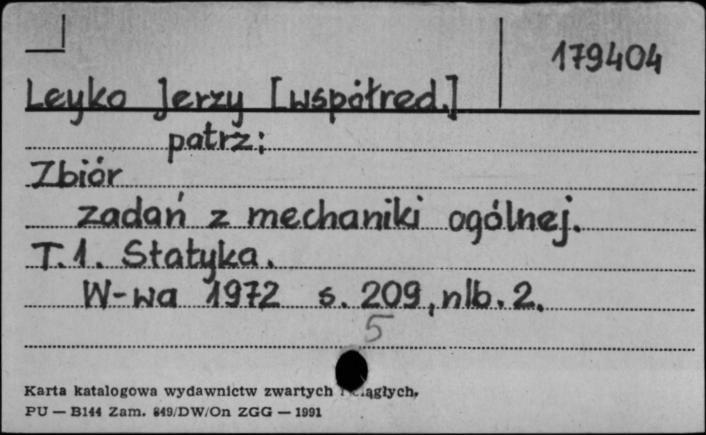 179404
Leyko Jerzy [współred.]
patrz:
Zbiór
zadań z mechaniki ogólnej.
T.1. Statyka.
W-wa 1972 s. 209, nlb. 2.
5
Karta katalogowa wydawnictw zwartych
PU — B144 Zam. 849/DW/On ZGG — 1991